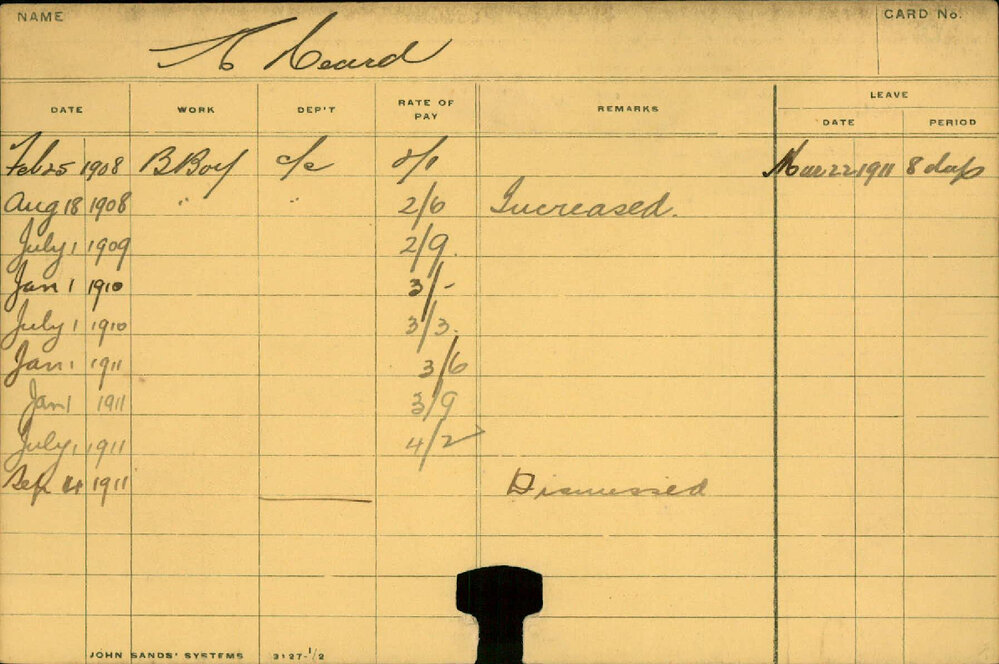 NAME
CARD No.
Heard
DATE WORK DEP'T RATE OF PAY REMARKS LEAVE
DATE PERIOD
Feb 25 1908 B Boy c/c 2/1 Mar 22 1911 8 days
Aug 18 1908 " " 2/6 Increased.
July 1 1909 2/9
Jan 1 1910 3/-
July 1 1910 3/3.
Jan 1 1911 3/6
Jan 1 1911 3/9
July 1 1911 4/2
Sep 1911 Dismissed
JOHN SANDS' SYSTEMS 3127-1/2